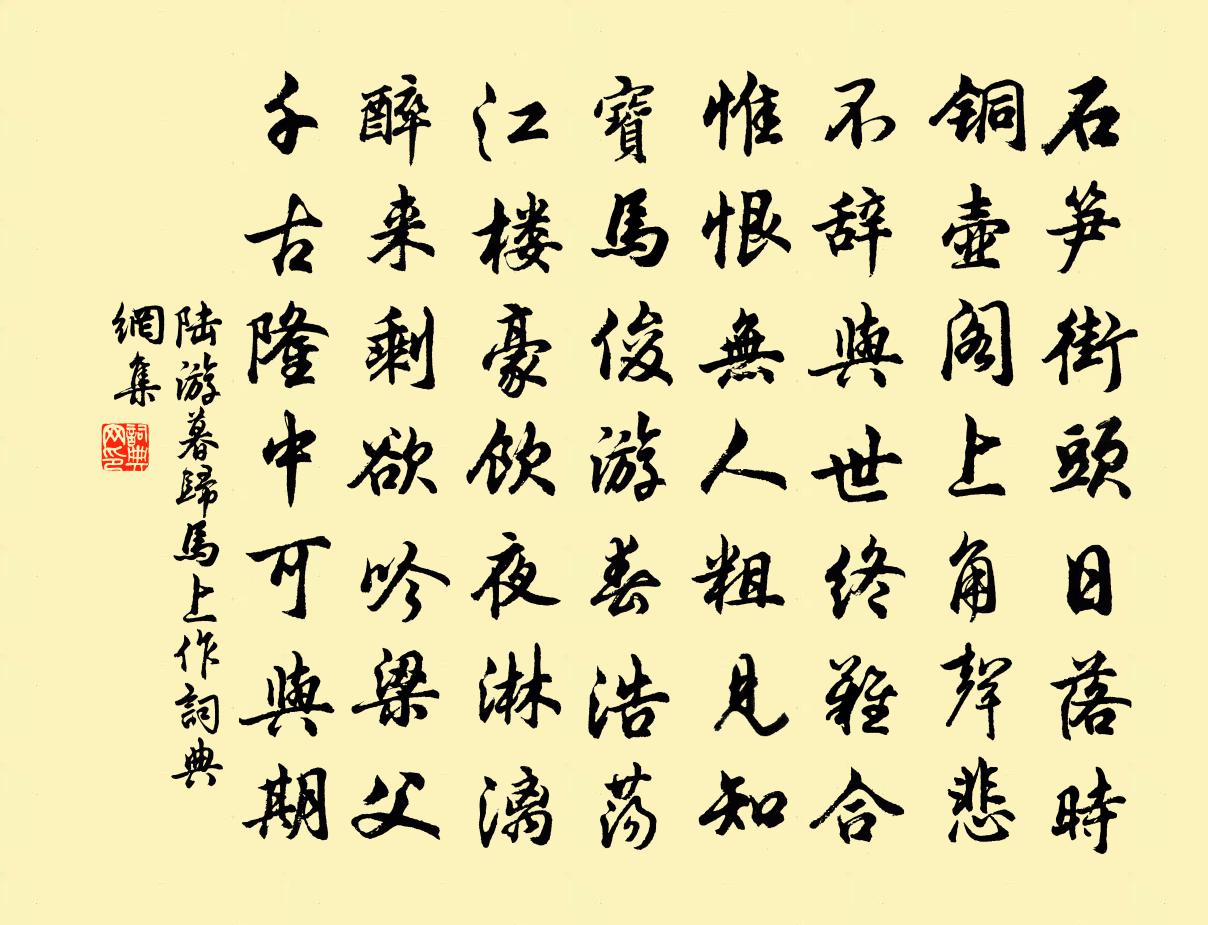 石笋街頭日落時
铜壺阁上角聲悲
不辞與世终難合
惟恨無人粗見知
寶馬俊游春浩荡
江楼豪饮夜淋漓
醉来剩欲吟梁父
千古隆中可與期
陆游暮歸馬上作詞典
網集
詞典
网印